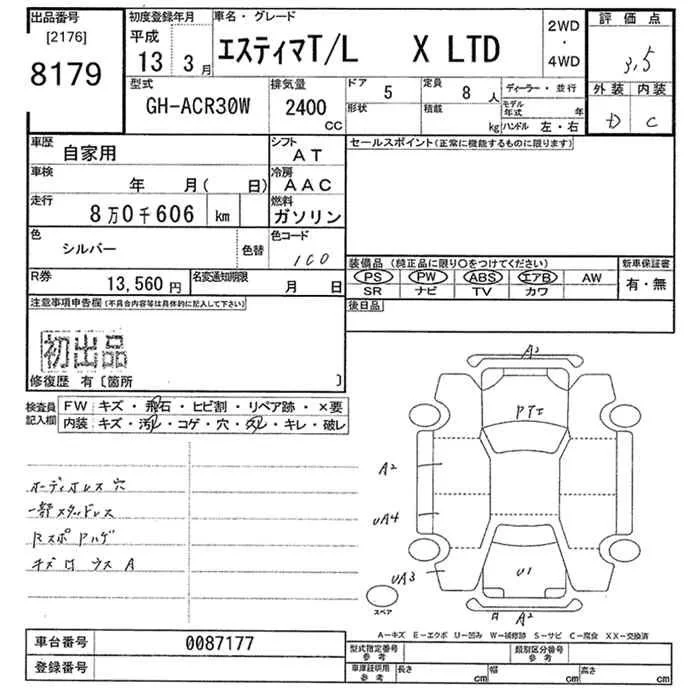 出品番号
[2176]
8179
初度登録年月
平成
13 3月
車名・グレード
エスティマT/L X LTD
2WD
・
4WD
評価点
3.5
外装 内装
D C
型式
GH-ACR30W
排気量
2400
CC
ドア 5
形状
定員 8 人
積載 kg
ディーラー・並行
モデル年式 年
ハンドル 左・右
車歴 自家用
シフト AT
車検 年 月( 日)
冷房 AAC
走行 8万0千606 km
燃料 ガソリン
色 シルバー 色替
色コード 100
R券 13,560円
名変通知期限 月 日
セールスポイント(正常に機能するものに限ります)
装備品(純正品に限り○をつけてください)
PS PW ABS エアB AW
SR ナビ TV カワ
新車保証書
有・無
後日品
注意事項申告欄(不具合内容等は具体的に記入して下さい)
初出品
修復歴 有〔箇所 〕
検査員記入欄
FW キズ・飛石・ヒビ割・リペア跡・×要
内装 キズ・汚レ・コゲ・穴・スレ・キレ・破レ
オーディオレス 穴
一部スタッドレス
RスポPハゲ
A2
PTエ
A2
UA4
UA3
U1
A2
スペア
A-キズ E-エクボ U-凹み W-補修跡 S-サビ C-腐食 XX-交換済
車台番号 0087177
登録番号
型式指定番号 参考
類別区分番号 参考
車庫証明用 参考
長さ cm 幅 cm 高さ cm